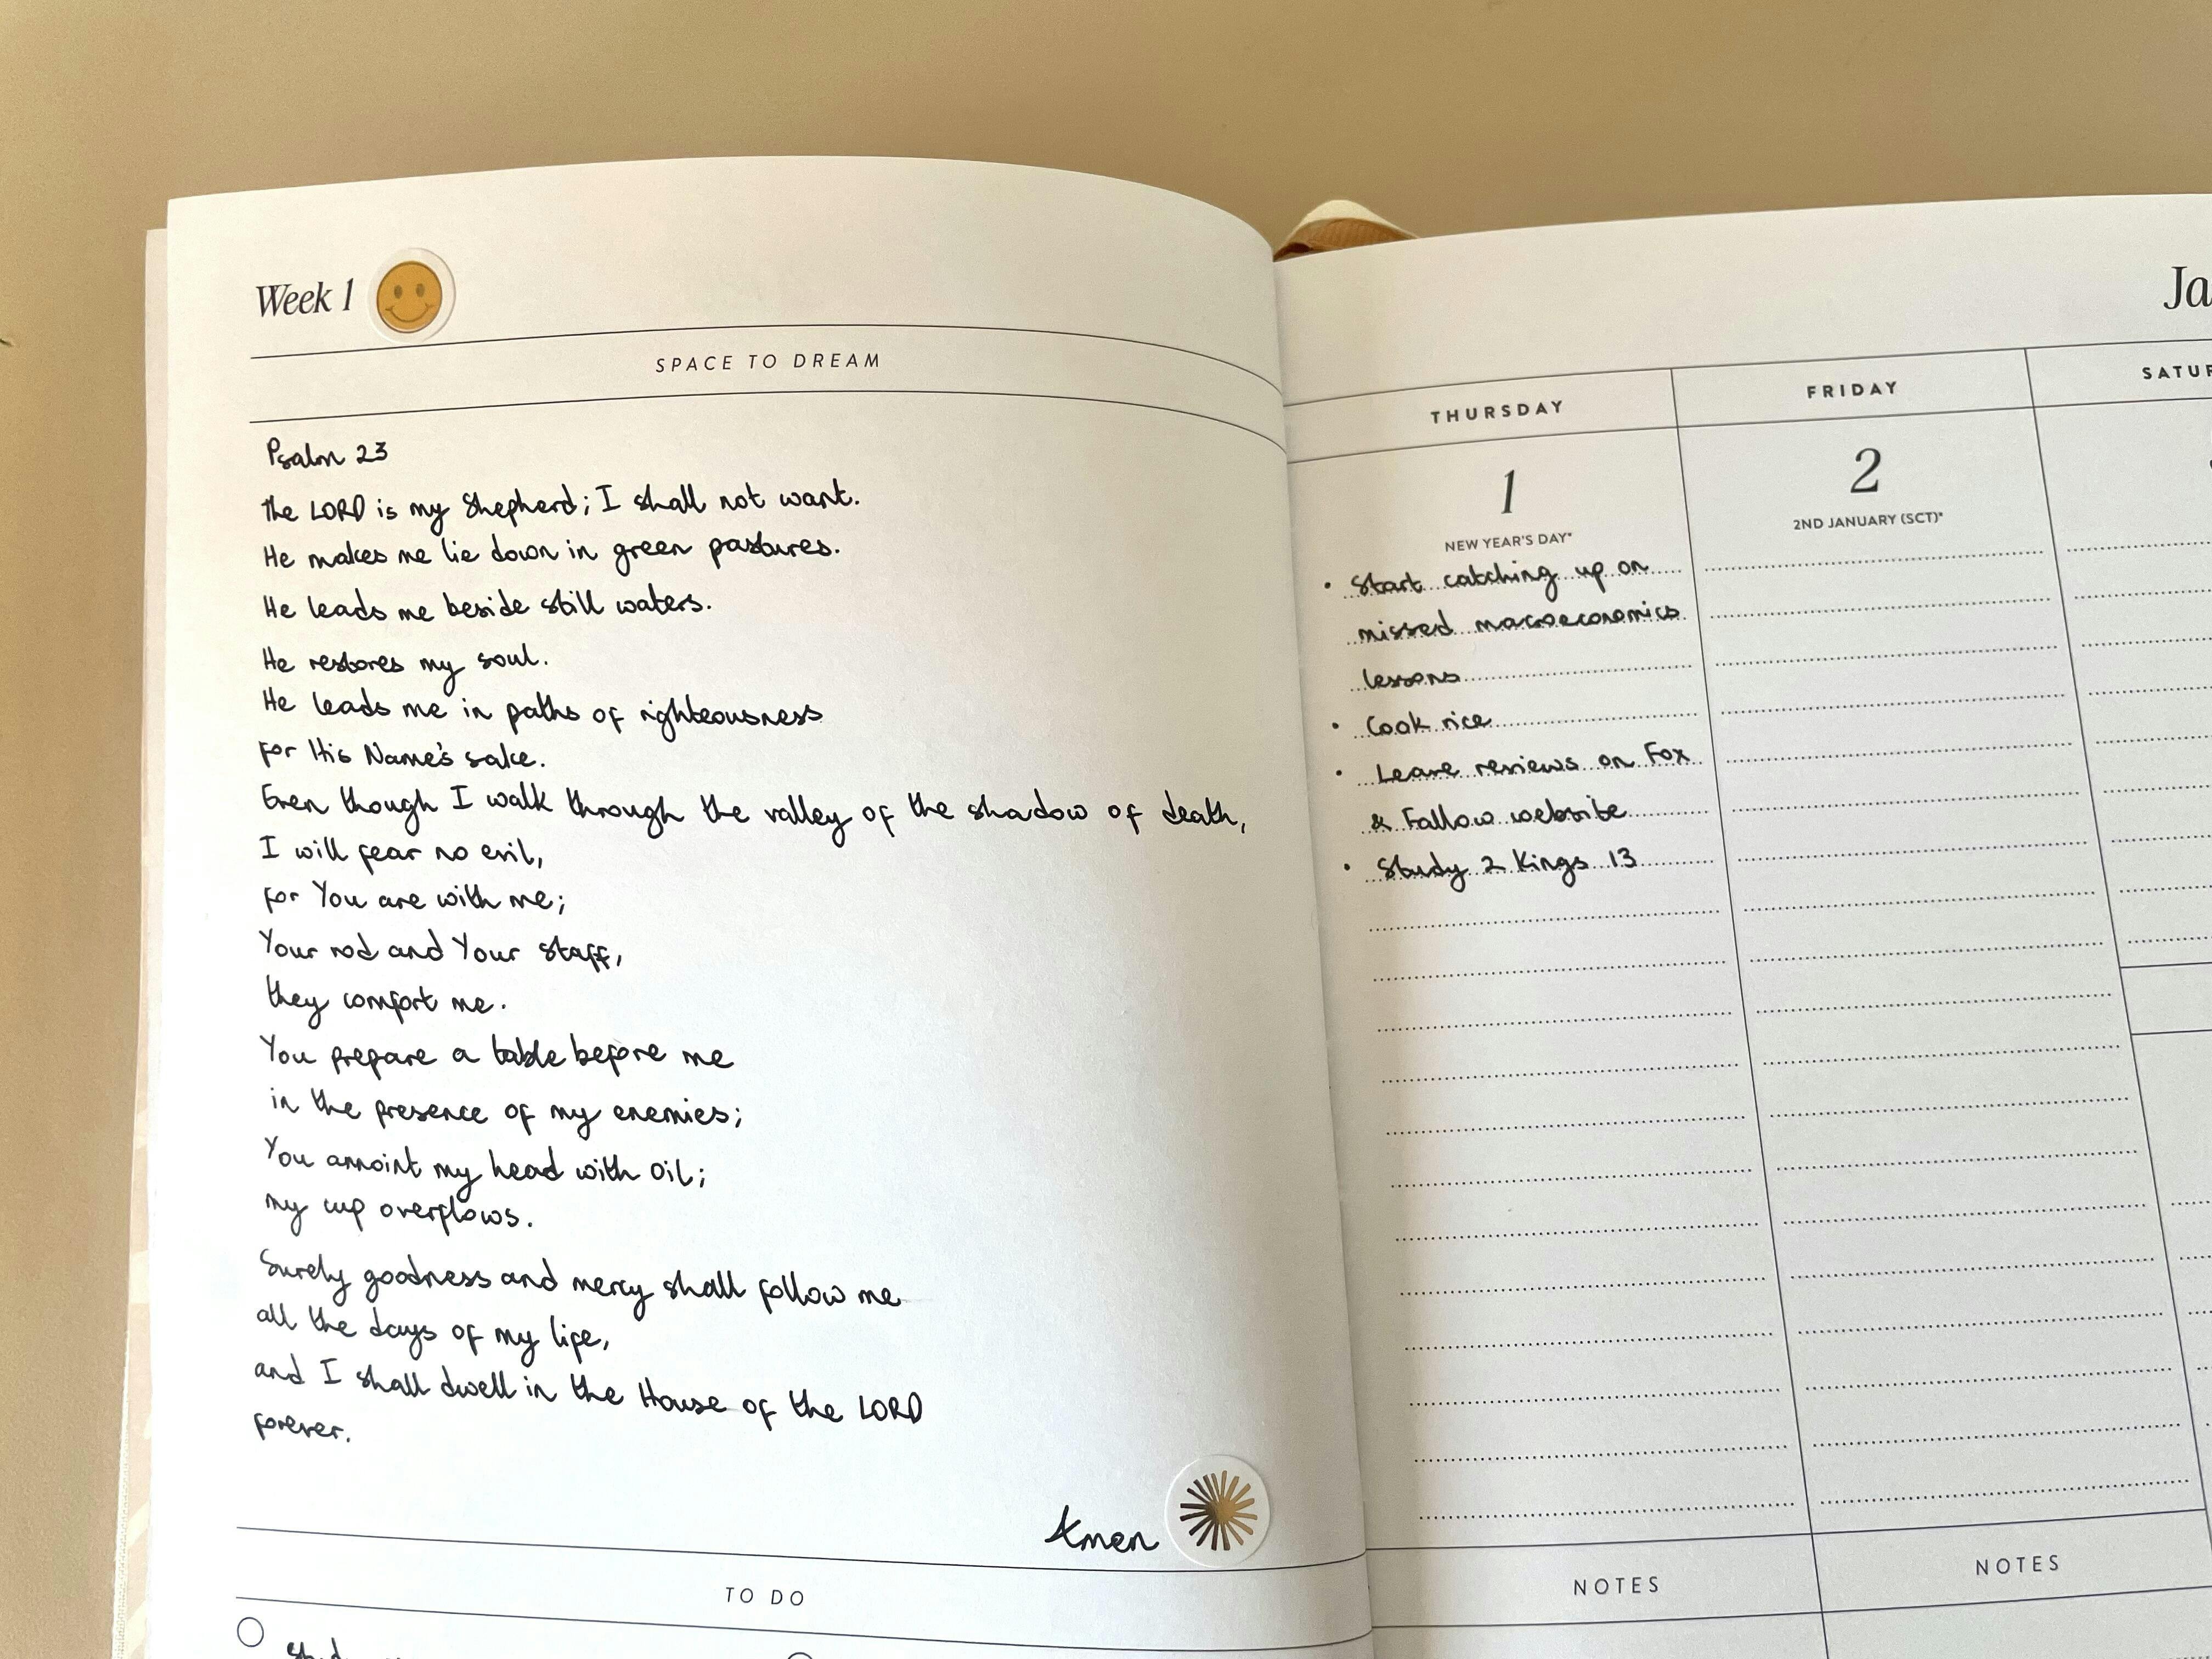 Week 1
SPACE TO DREAM
Psalm 23
the LORD is my Shepherd; I shall not want.
He makes me lie down in green pastures.
He leads me beside still waters.
He restores my soul.
He leads me in paths of righteousness
for His Name's sake.
Even though I walk through the valley of the shadow of death,
I will fear no evil,
for You are with me;
Your rod and Your staff,
they comfort me.
You prepare a table before me
in the presence of my enemies;
You annoint my head with oil;
my cup overflows.
Surely goodness and mercy shall follow me
all the days of my life,
and I shall dwell in the House of the LORD
forever.
Amen
TO DO
Ja
THURSDAY
1
NEW YEAR'S DAY*
• Start catching up on
missed macroeconomics
lessons
• Cook rice
• Leave reviews on Fox
& Fallow website
• Study 2 Kings 13
NOTES
FRIDAY
2
2ND JANUARY (SCT)*
NOTES
SATUR